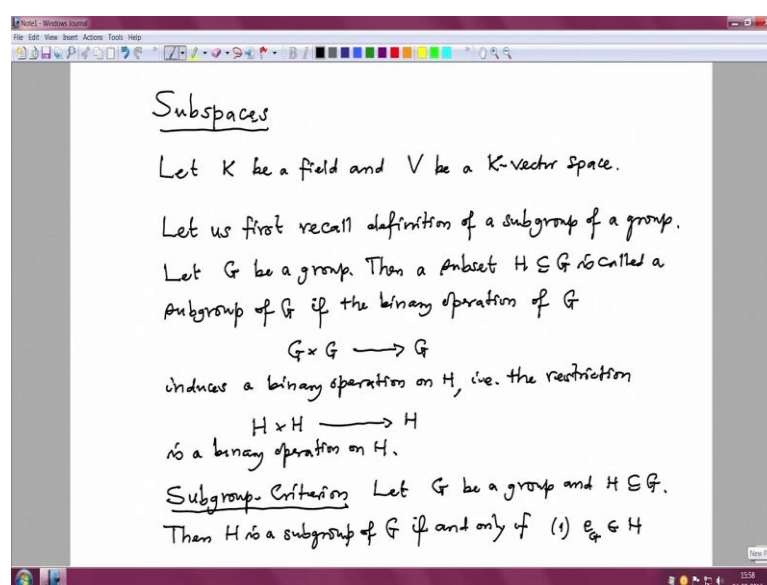 Note1 - Windows Journal
File Edit View Insert Actions Tools Help
Subspaces
Let K be a field and V be a K-vector space.
Let us first recall definition of a subgroup of a group.
Let G be a group. Then a subset H ⊆ G is called a
subgroup of G if the binary operation of G
G × G ⟶ G
induces a binary operation on H, i.e. the restriction
H × H ⟶ H
is a binary operation on H.
Subgroup-Criterion Let G be a group and H ⊆ G.
Then H is a subgroup of G if and only if (1) e_G ∈ H
New P
15:58